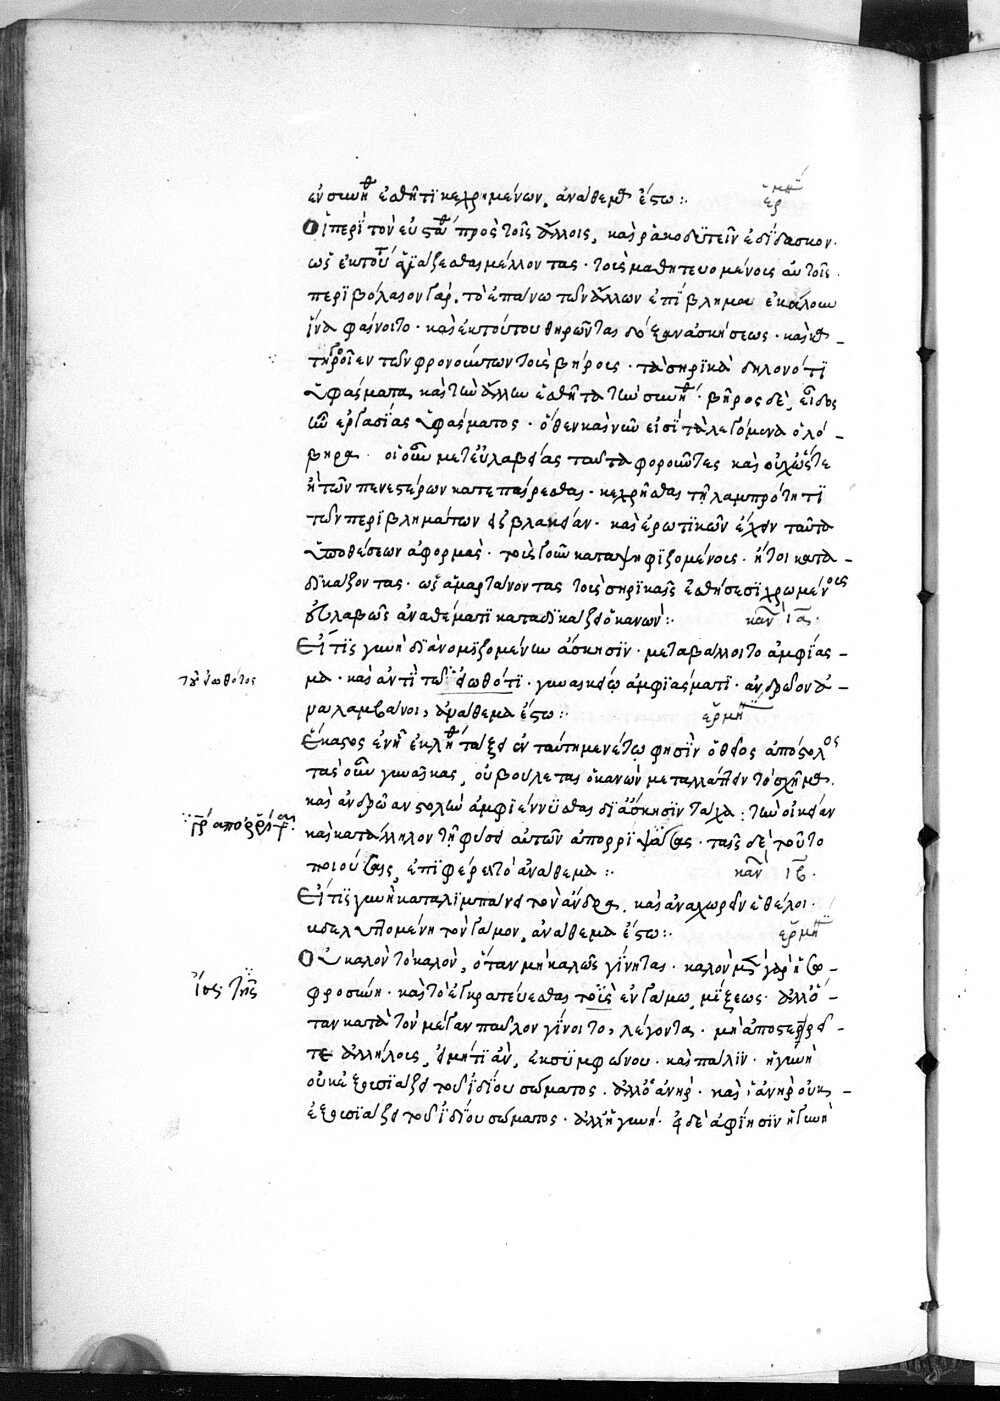 ἐν συνηθ ἐσθῆτι κεχρημένων, ἀνάθεμα ἔστω :· ἑρμη
Οἱ περὶ τὸν εὐστάθ πρὸς τοῖς ἄλλοις, καὶ ῥακοδυτεῖν ἐδίδασκον.
ὡς ἐκ τούτ ἁγιάζεσθαι μέλλοντας · τοὺς μαθητευομένους αὐτοῖς.
περιβόλαιον γὰρ, τὸ ἐπάνω τῶν ἄλλων ἐπίβλημα ἐκάλουν
ἵνα φαίνοιτο · καὶ ἐκ τούτου θηρῶντας δόξαν ἀσκήσεως · καὶ κατ–
τῶν φρονούντων τοὺς βήρους · τὰ σηρικὰ δηλονότι
ὑφάσματα, καὶ τὴν ἄλλην ἐσθῆτα τὴν συνήθ · βῆρος δὲ, εἶδος
ἦν ἐργασίας ὑφάσματος · ὅθεν καὶ νῦν εἰσὶ τὰ λεγόμενα ὁλό–
βηρα · οἱ οὖν μετ' εὐλαβείας ταῦτα φοροῦντες καὶ οὐχ ὥστε
ἢ τῶν πενεστέρων κατεπαίρεσθαι · κεχρῆσθαι τῇ λαμπρότητι
τῶν περιβλημάτων εἰς βλακείαν · καὶ ἐρωτικῶν ἔχειν ταῦτα
ὑποθέσεων ἀφορμάς · τοὺς γοῦν καταψηφιζομένους · ἤτοι κατα–
δικάζοντας · ὡς ἁμαρτάνοντας τοὺς σηρικαῖς ἐσθήσεσι χρωμένους
εὐλαβῶς ἀναθέματι καταδικάζει ὁ κανών :· καν ιγ.
Εἴ τις γυνὴ διὰ νομιζομένην ἄσκησιν · μεταβάλλοιτο ἀμφίασ–
μα · καὶ ἀντὶ τοῦ εἰωθότι · γυναικείῳ ἀμφιάσματι · ἀνδρῷον ἀ–
ναλαμβάνοι, ἀνάθεμα ἔστω :· ἑρμη
τοῦ εἰωθότος
Ἕκαστος ἐν ᾗ ἐκλήθ τάξει ἐν ταύτῃ μενέτω φησὶν ὁ θεῖος ἀπόστολος
τὰς οὖν γυναῖκας, οὐ βούλεται ὁ κανὼν μεταλλάττειν τὸ σχῆμα.
καὶ ἀνδρῴαν στολὴν ἀμφιέννυσθαι δι' ἄσκησιν τάχα · τὴν οἰκείαν
καὶ κατάλληλον τῇ φύσει αὐτῶν ἀπορρίψασαι · ταῖς δὲ τοῦτο
ποιούσαις, ἐπιφέρει τὸ ἀνάθεμα :· καν ιδ.
Εἴ τις γυνὴ καταλιμπάνει τὸν ἄνδρα, καὶ ἀναχωρεῖν ἐθέλοι ·
βδελυττομένη τὸν γάμον, ἀνάθεμα ἔστω :· ἑρμη
Οὐ καλὸν τὸ καλὸν, ὅταν μὴ καλῶς γίνηται · καλὸν μὲν γὰρ ἡ σω–
φροσύνη · καὶ τὸ ἐγκρατεύεσθαι τοῖς ἐν γάμῳ μίξεως · ἀλλ' ὅ–
ἴσως τῆς
ταν κατὰ τὸν μέγαν παῦλον γίνοιτο, λέγοντα · μὴ ἀποστερεῖ–
τε ἀλλήλους, εἰ μή τι ἂν, ἐκ συμφώνου · καὶ πάλιν · ἡ γυνὴ
οὐκ ἐξουσιάζει τοῦ ἰδίου σώματος · ἀλλ' ὁ ἀνήρ · καὶ ὁ ἀνὴρ οὐκ–
ἐξουσιάζει τοῦ ἰδίου σώματος · ἀλλ' ἡ γυνή · εἰ δὲ ἀφίησιν ἡ γυνὴ